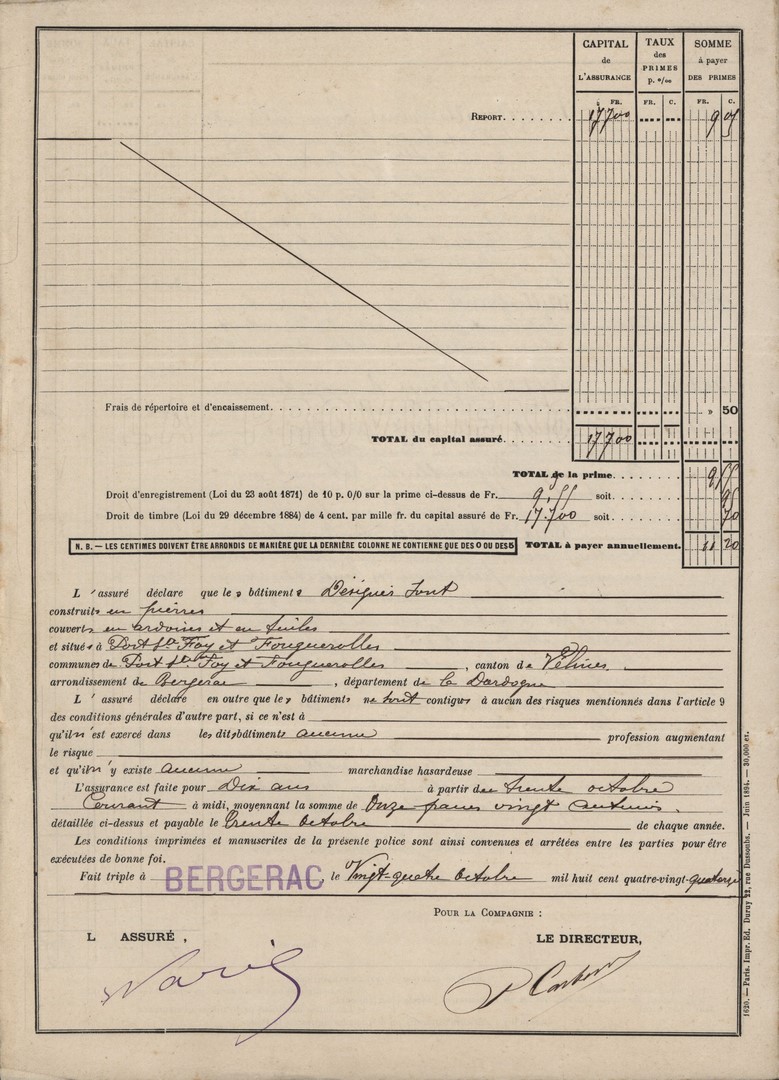 CAPITAL de L'ASSURANCE
TAUX des PRIMES p. º/ₒₒ
SOMME à payer DES PRIMES
FR. FR. C. FR. C.
REPORT. 17700 9 05
Frais de répertoire et d'encaissement. » 50
TOTAL du capital assuré. 17700
TOTAL de la prime. 9 55
Droit d'enregistrement (Loi du 23 août 1871) de 10 p. 0/0 sur la prime ci-dessus de Fr. 9.55 soit. 95
Droit de timbre (Loi du 29 décembre 1884) de 4 cent. par mille fr. du capital assuré de Fr. 17.700 soit. 70
N. B. — LES CENTIMES DOIVENT ÊTRE ARRONDIS DE MANIÈRE QUE LA DERNIÈRE COLONNE NE CONTIENNE QUE DES 0 OU DES 5 TOTAL à payer annuellement. 11 20
L'assuré déclare que les bâtiments Désignés sont
construits en pierres
couverts en ardoises et en tuiles
et situés à Port Ste Foy et Fouguerolles
communes de Port Ste Foy et Fouguerolles, canton de Vélines,
arrondissement de Bergerac, département de la Dordogne
L'assuré déclare en outre que les bâtiments ne sont contigus à aucun des risques mentionnés dans l'article 9
des conditions générales d'autre part, si ce n'est à
qu'il n'est exercé dans les dits bâtiments aucune profession augmentant
le risque
et qu'il n'y existe aucune marchandise hasardeuse
L'assurance est faite pour Dix ans à partir du trente octobre
Courant à midi, moyennant la somme de Onze francs vingt centimes,
détaillée ci-dessus et payable le trente Octobre de chaque année.
Les conditions imprimées et manuscrites de la présente police sont ainsi convenues et arrêtées entre les parties pour être
exécutées de bonne foi.
Fait triple à BERGERAC, le Vingt-quatre Octobre mil huit cent quatre-vingt-quatorze
POUR LA COMPAGNIE :
L ASSURÉ, LE DIRECTEUR,
1620. — Paris. Impr. Ed. Duruy 22, rue Dussoubs. — Juin 1894. — 30,000 ex.